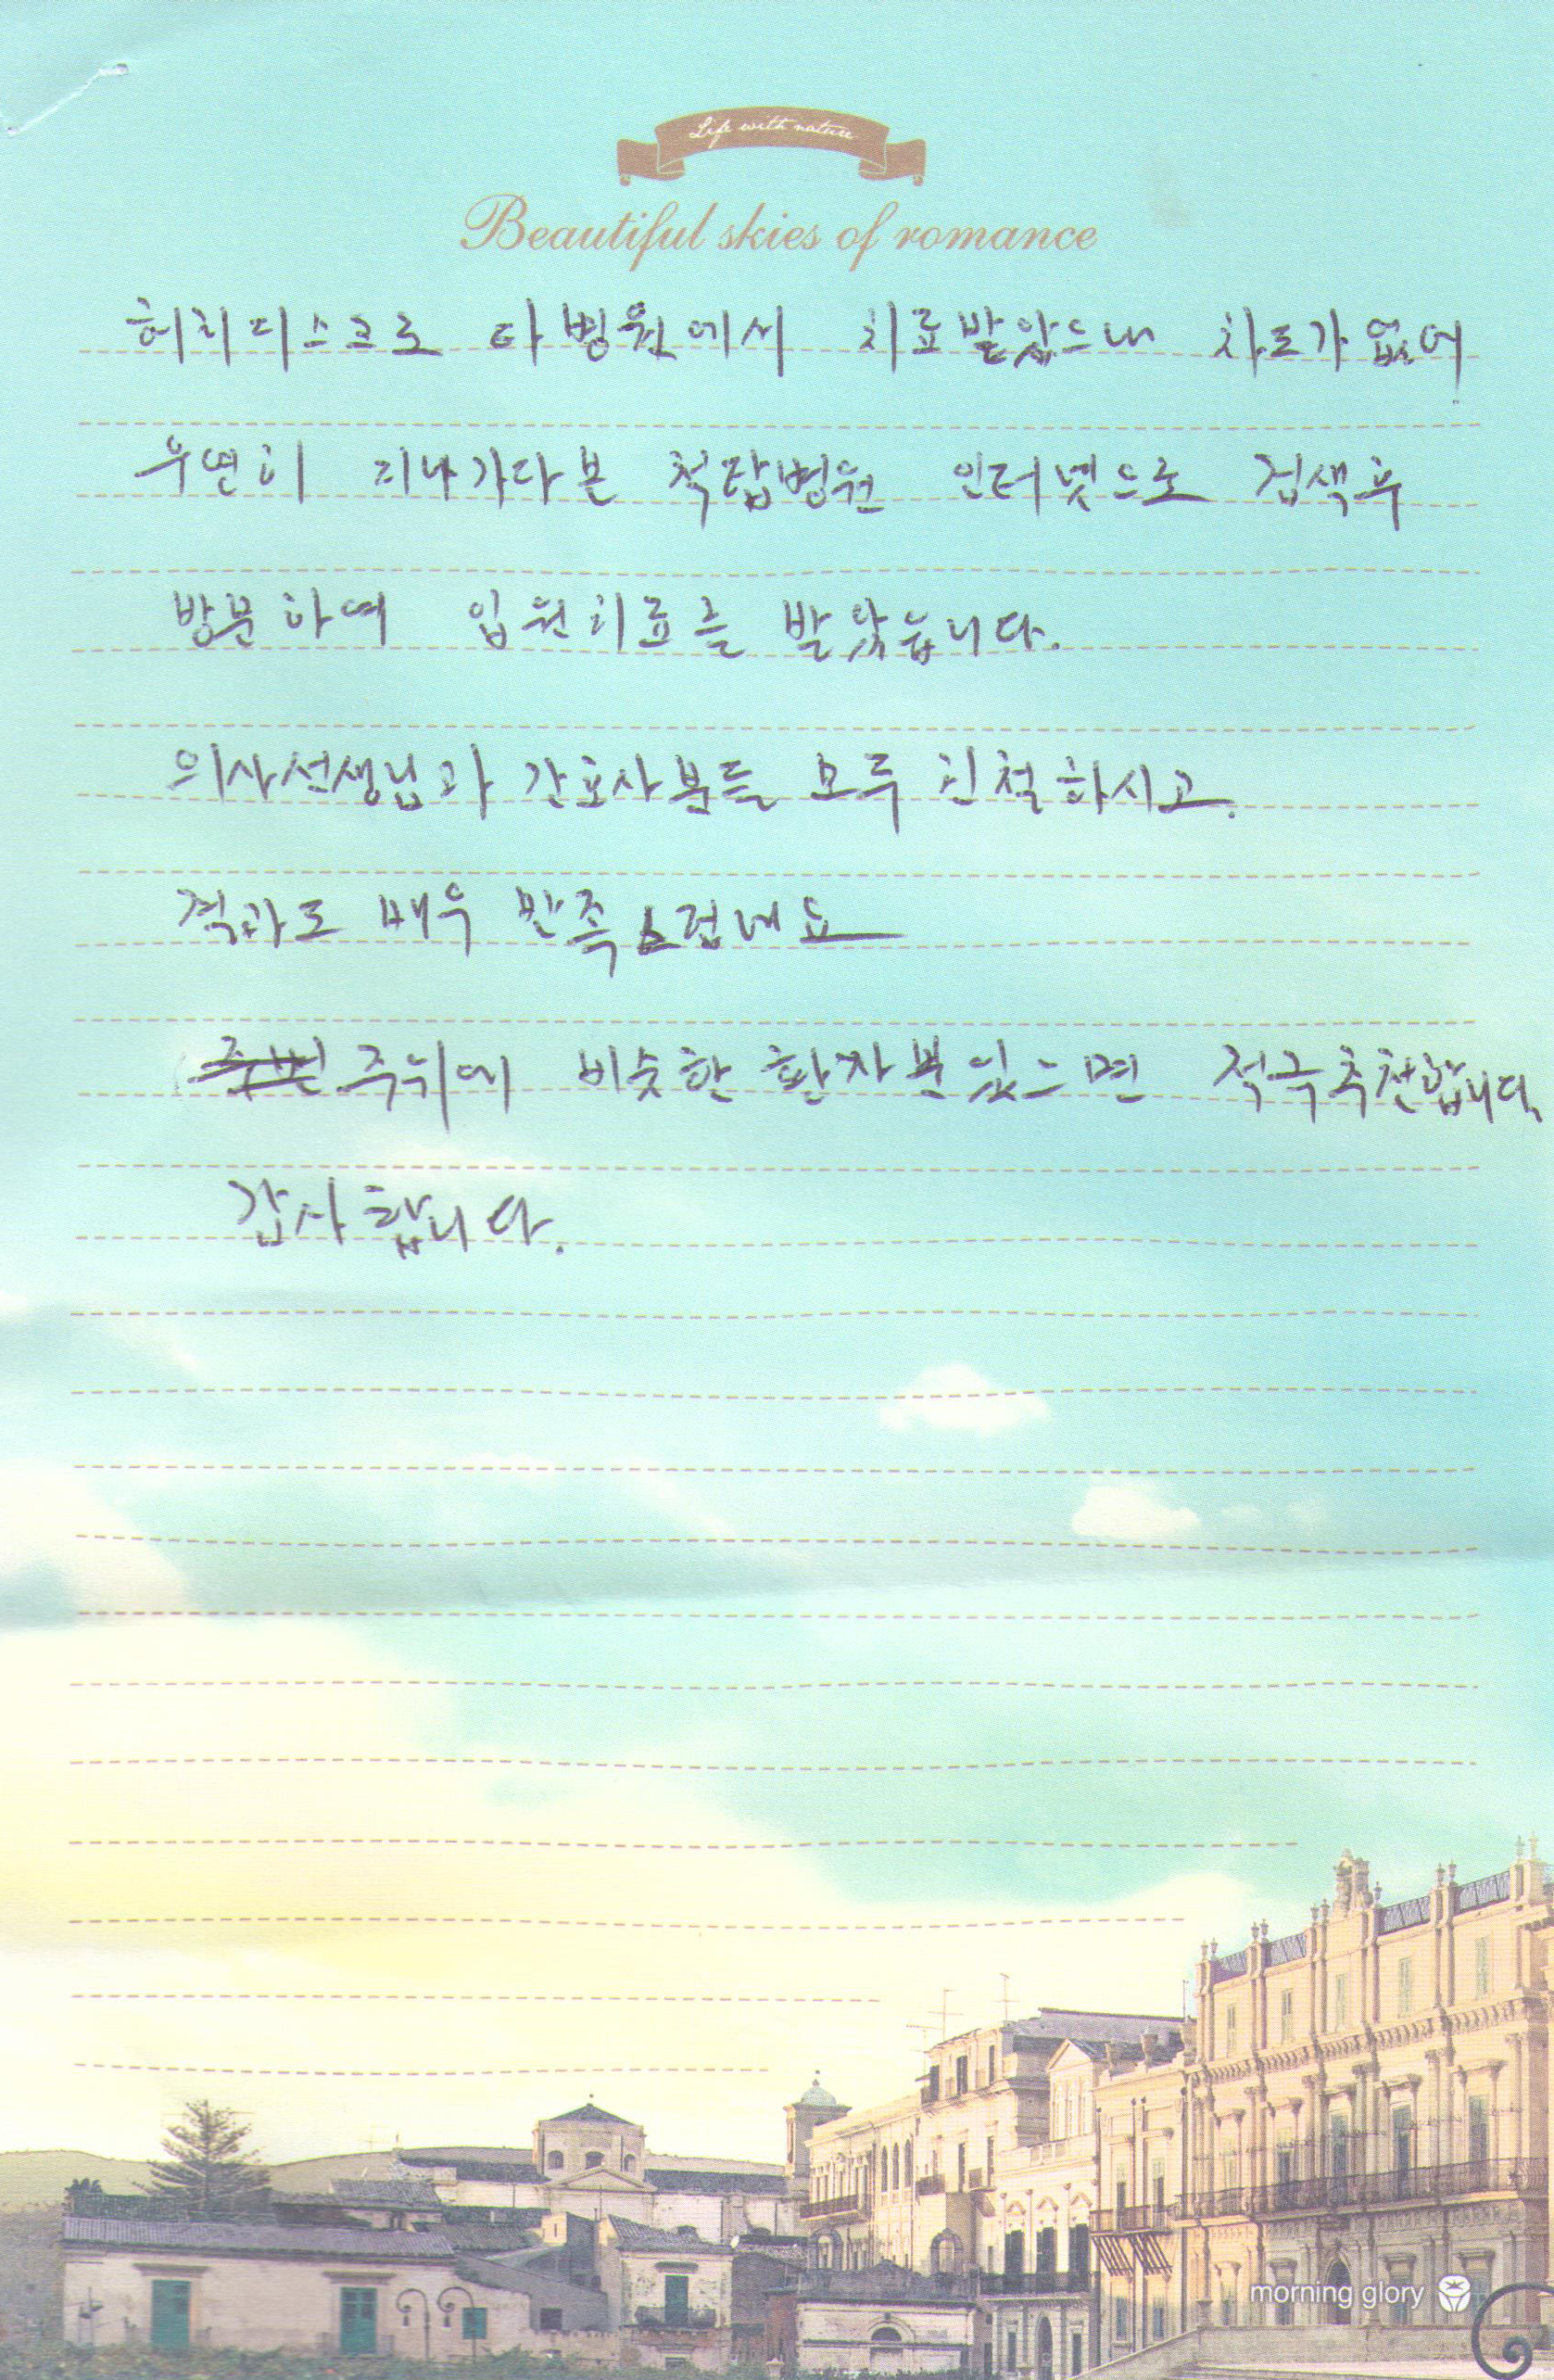 Life with nature
Beautiful skies of romance
허리디스크로 타병원에서 치료받았으나 차도가 없어
우연히 지나가다 본 척탑병원 인터넷으로 검색후
방문하여 입원치료를 받았읍니다.
의사선생님과 간호사분들 모두 친절하시고.
결과도 매우 만족스럽네요
주위에 비슷한 환자분 있으면 적극추천합니다.
감사합니다.
morning glory